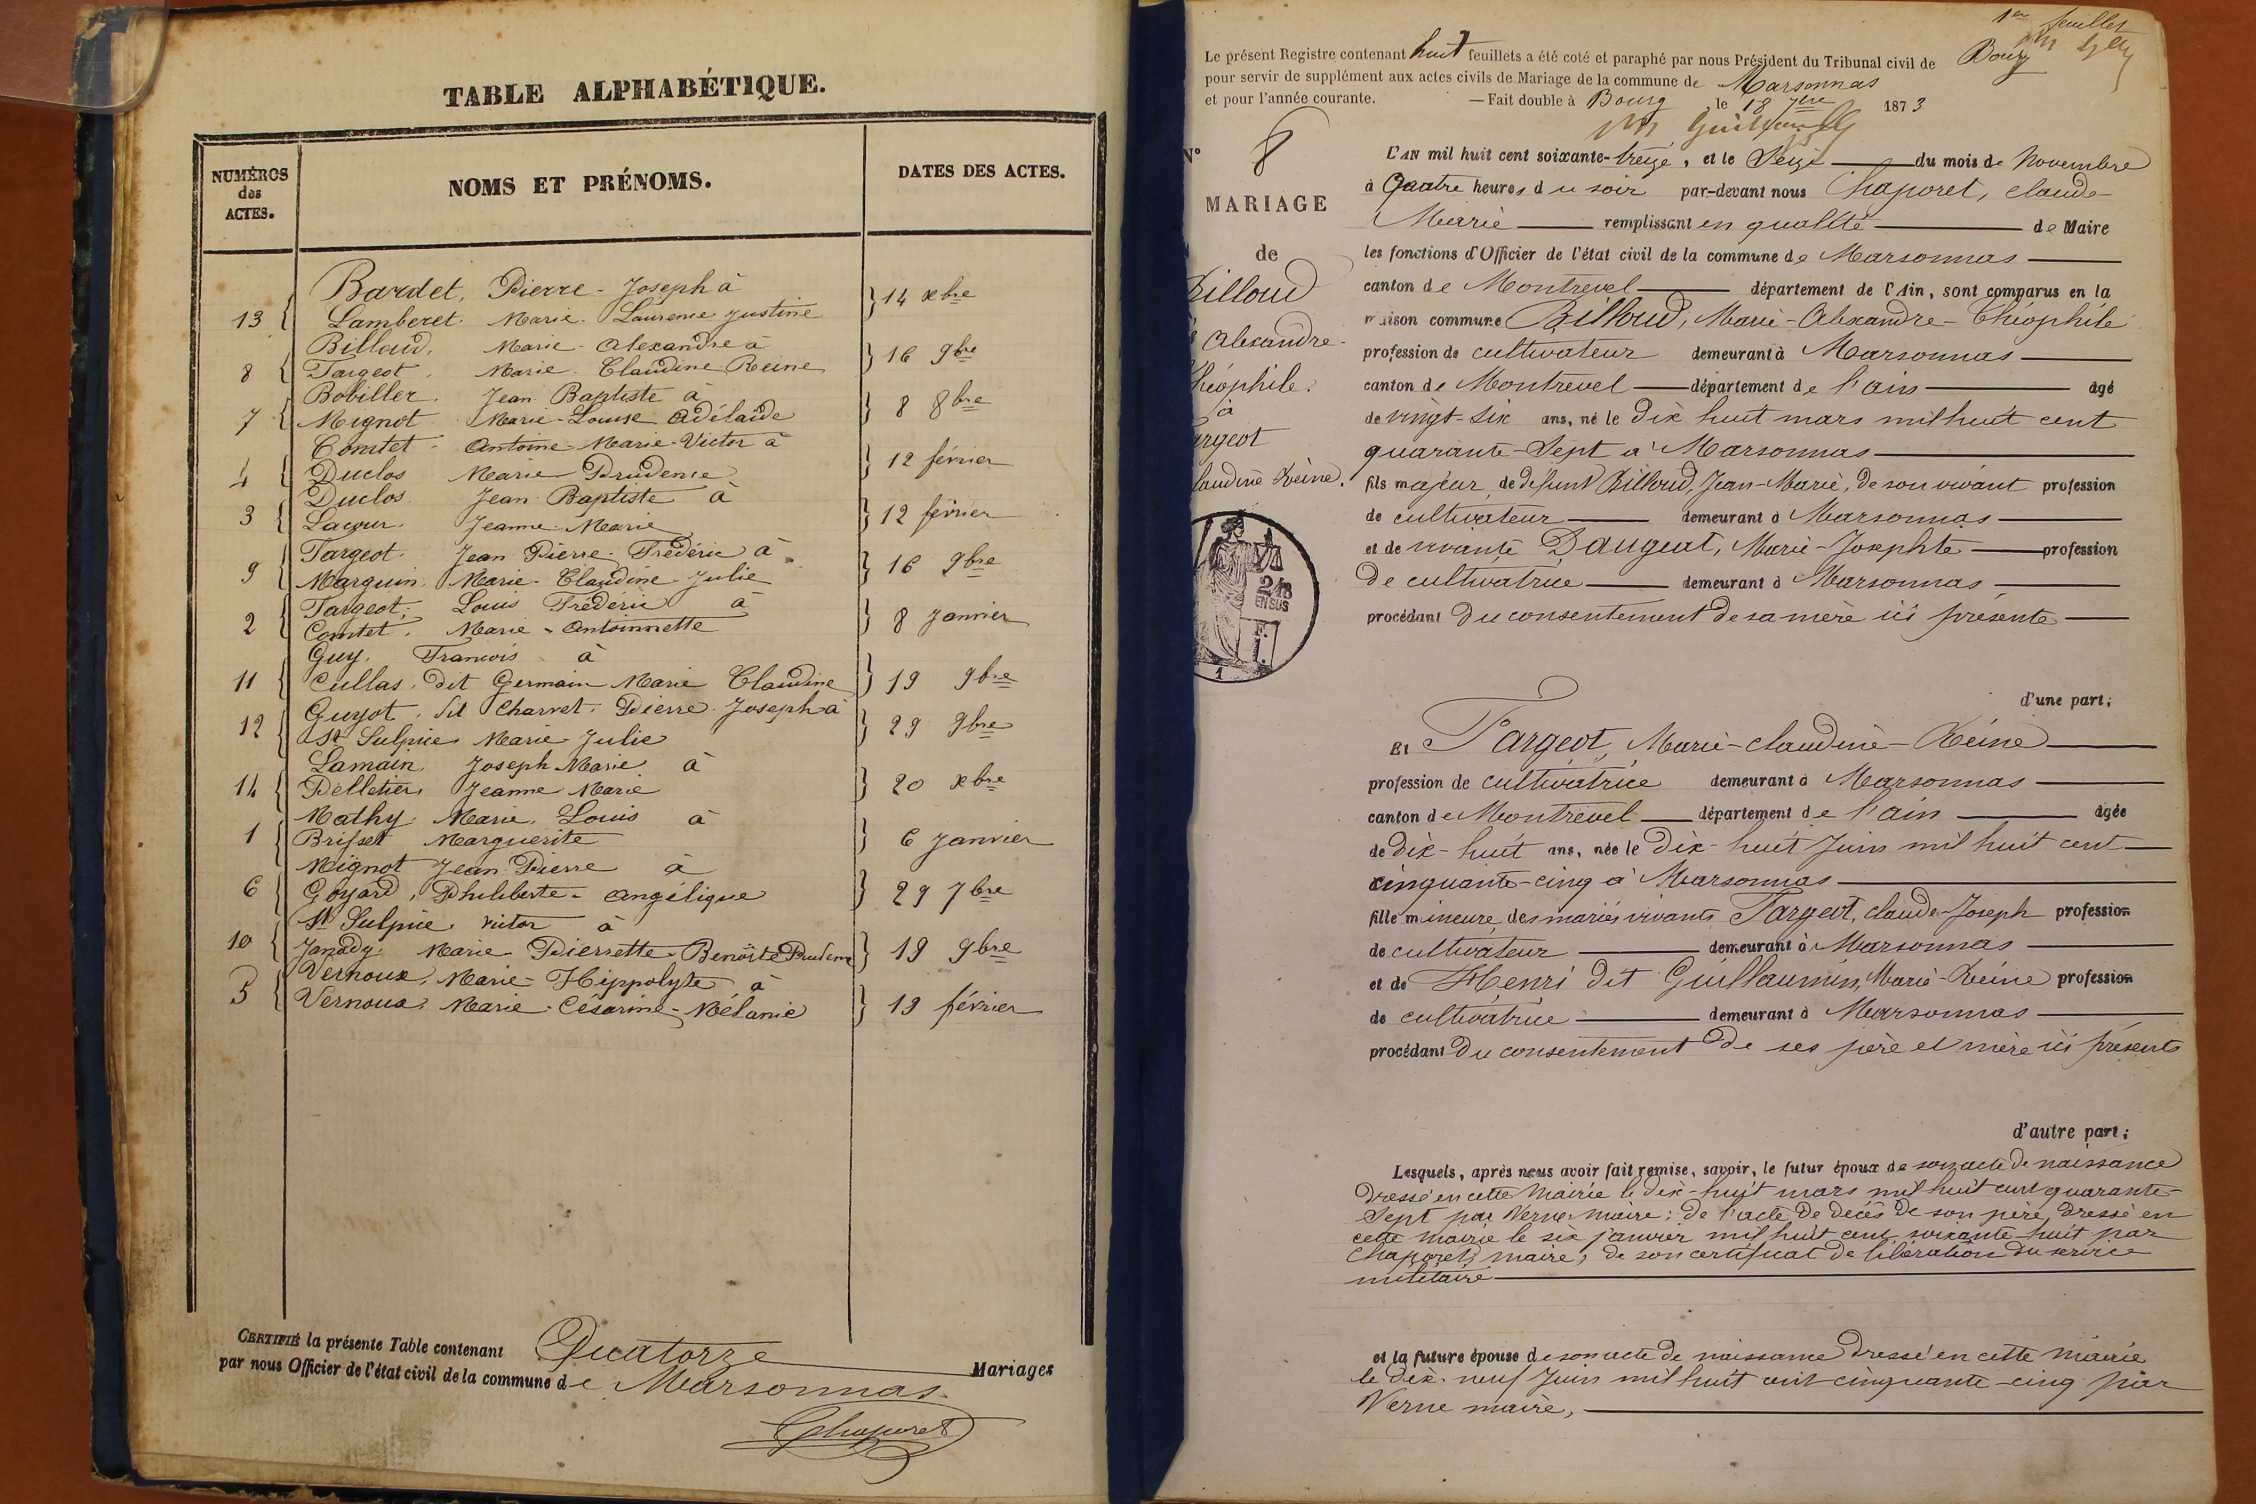 TABLE ALPHABÉTIQUE.
NUMÉROS des ACTES.
NOMS ET PRÉNOMS.
DATES DES ACTES.
Bardet, Pierre-Joseph à
13 { Lamberet. Marie. Laurence Justine } 14 xbre
Billoud, Marie-Alexandre à
8 { Fargeot. Marie. Claudine Reine } 16 9bre
Bobiller. Jean Baptiste à
7 { Mignot Marie-Louise Adélaïde } 8 8bre
Comtet Antoine-Marie-Victor à
4 { Duclos Marie Prudence } 12 février
Duclos Jean Baptiste à
3 { Lacour. Jeanne-Marie } 12 février
Fargeot. Jean Pierre-Frédéric à
9 { Marguin. Marie-Claudine-Julie } 16 9bre
Fargeot. Louis Frédéric à
2 { Comtet. Marie-Antoinnette } 8 Janvier
Guy. Francois à
11 { Cullas, dit Germain Marie Claudine } 19 9bre
Guyot, dit Charvet. Pierre-Joseph à
12 { St Sulpice Marie Julie } 29 9bre
Lamain Joseph Marie à
14 { Pelletier, Jeanne Marie } 20 xbre
Mathy. Marie. Louis à
1 { Brisset Marguerite } 6 Janvier
Mignot Jean-Pierre à
6 { Goyard, Philiberte-Angélique } 29 7bre
St Sulpice, Victor à
10 { Janody. Marie Pierrette-Benoîte Prudence } 19 9bre
Vernoux, Marie-Hippolyte à
5 { Vernoux, Marie-Césarine-Mélanie } 19 février
CERTIFIÉ la présente Table contenant Quatorze Mariages
par nous Officier de l'état civil de la commune de Marsonnas.
Chaporet
1er feuillet
Le présent Registre contenant huit feuillets a été coté et paraphé par nous Président du Tribunal civil de Bourg
pour servir de supplément aux actes civils de Mariage de la commune de Marsonnas
et pour l'année courante. — Fait double à Bourg, le 18 7bre 1873
N° 8
MARIAGE
de
Billoud
Alexandre-
Théophile.
à
argeot
laudine Reine.
2/10
EN SUS
1 F.
1
L'AN mil huit cent soixante-treize, et le Seize du mois de Novembre
à Quatre heures du soir par-devant nous Chaporet, Claude
Marie remplissant en qualité de Maire
les fonctions d'Officier de l'état civil de la commune de Marsonnas
canton de Montrevel département de l'Ain, sont comparus en la
maison commune Billoud, Marie-Alexandre-Théophile
profession de cultivateur demeurant à Marsonnas
canton de Montrevel département de l'ain âgé
de vingt-six ans, né le dix huit mars mil huit cent
quarante-Sept à Marsonnas
fils majeur de défunt Billoud, Jean-Marie, de son vivant profession
de cultivateur demeurant à Marsonnas
et de vivante Daugeat, Marie-Josephte profession
de cultivatrice demeurant à Marsonnas
procédant du consentement de sa mère ici présente
d'une part;
Et Fargeot, Marie-Claudine-Reine
profession de cultivatrice demeurant à Marsonnas
canton de Montrevel département de l'ain âgée
de dix-huit ans, née le dix-huit Juin mil huit cent
cinquante-cinq à Marsonnas
fille mineure des mariés vivants Fargeot, Claude-Joseph profession
de cultivateur demeurant à Marsonnas
et de Henri dit Guillaumin, Marie-Reine profession
de cultivatrice demeurant à Marsonnas
procédant du consentement de ses père et mère ici présents
d'autre part;
Lesquels, après nous avoir fait remise, savoir, le futur époux de son acte de naissance
dressé en cette Mairie le dix-huit mars mil huit cent quarante-
Sept par Verne maire; de l'acte de décès de son père dressé en
cette mairie le six janvier mil huit cent soixante-huit par
Chaporet, maire; de son certificat de libération du service
militaire
et la future épouse de son acte de naissance dressé en cette Mairie
le dix-neuf Juin mil huit cent cinquante-cinq par
Verne maire,